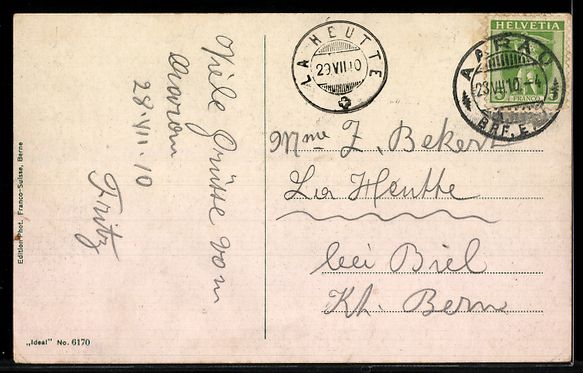 Viele Grüsse vom
28.VII.10
Fritz
Edition Phot. Franco-Suisse, Berne
„Ideal" No. 6170
LA HEUTTE
29.VII.10
HELVETIA
5
FRANCO
AARAU
28.VII.10.-4
BRF. E.
Mme Z. Bekert
La Heutte
bei Biel
Kt. Bern